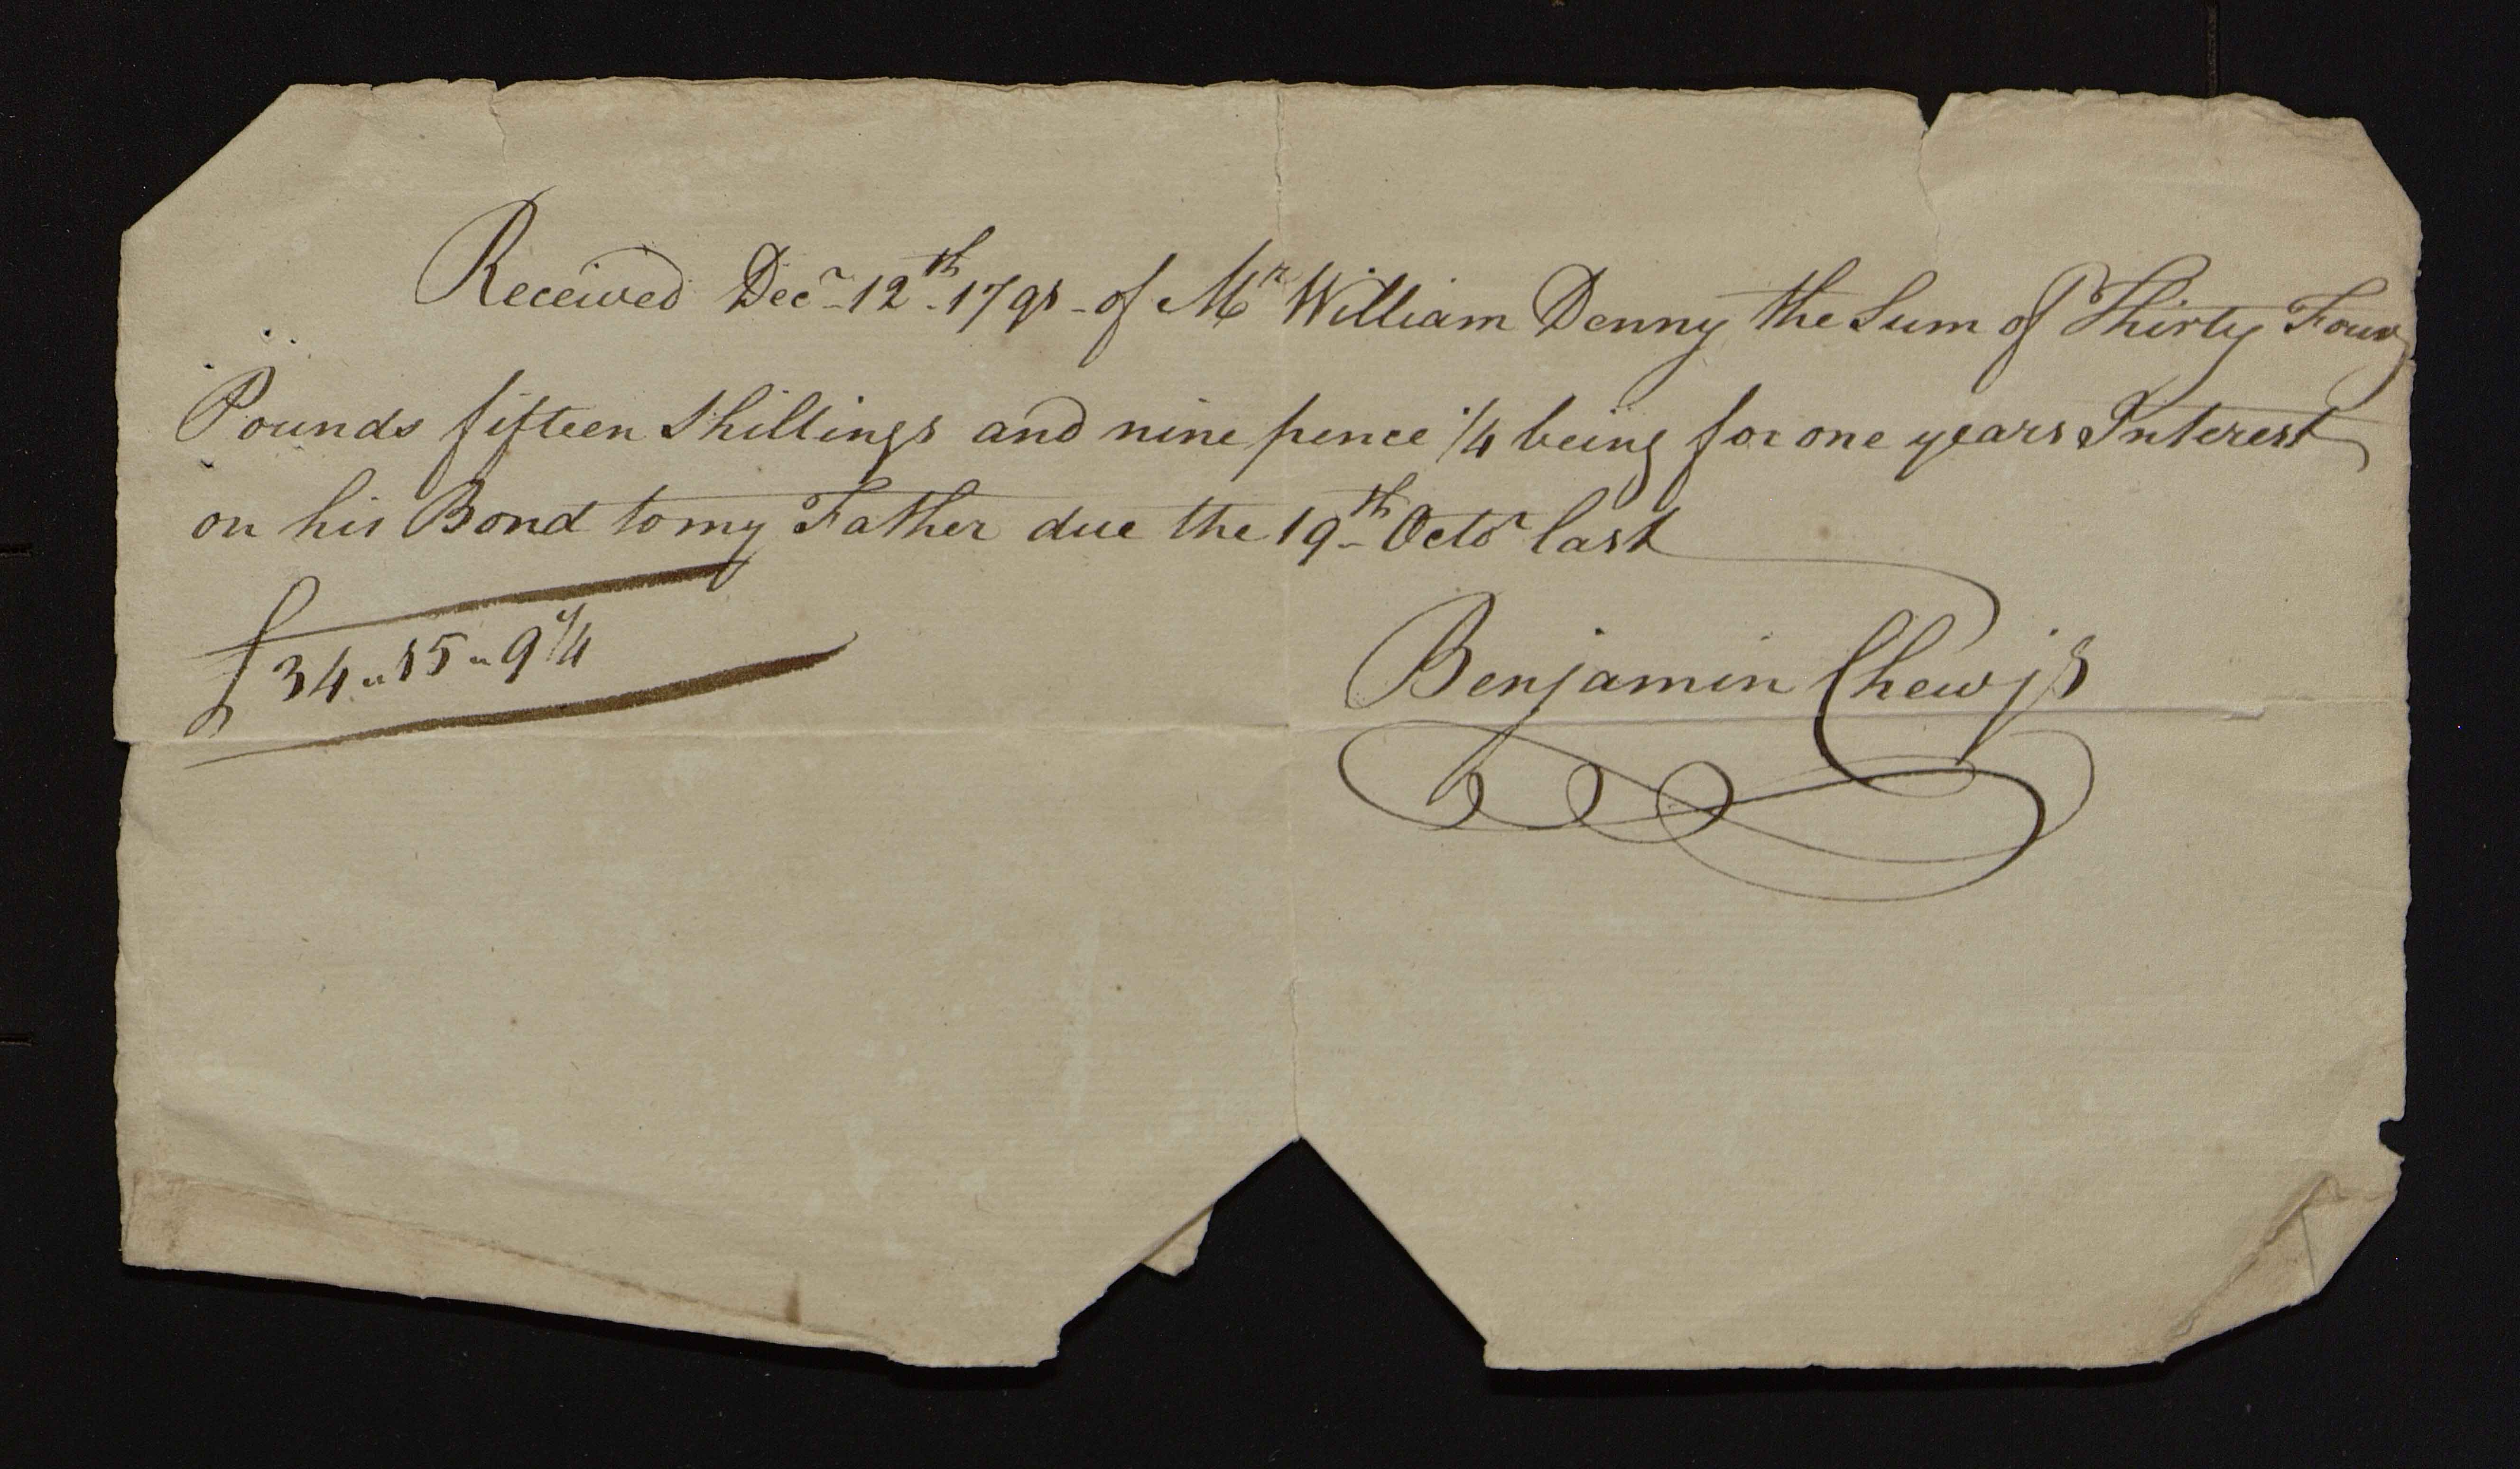 Received Decr 12th 1791 of Mr William Denny the Sum of Thirty Four
Pounds fifteen Shillings and nine pence 1/4 being for one years Interest
on his Bond to my Father due the 19th Octor last
£34 „ 15 „ 9 1/4
Benjamin Chew jr